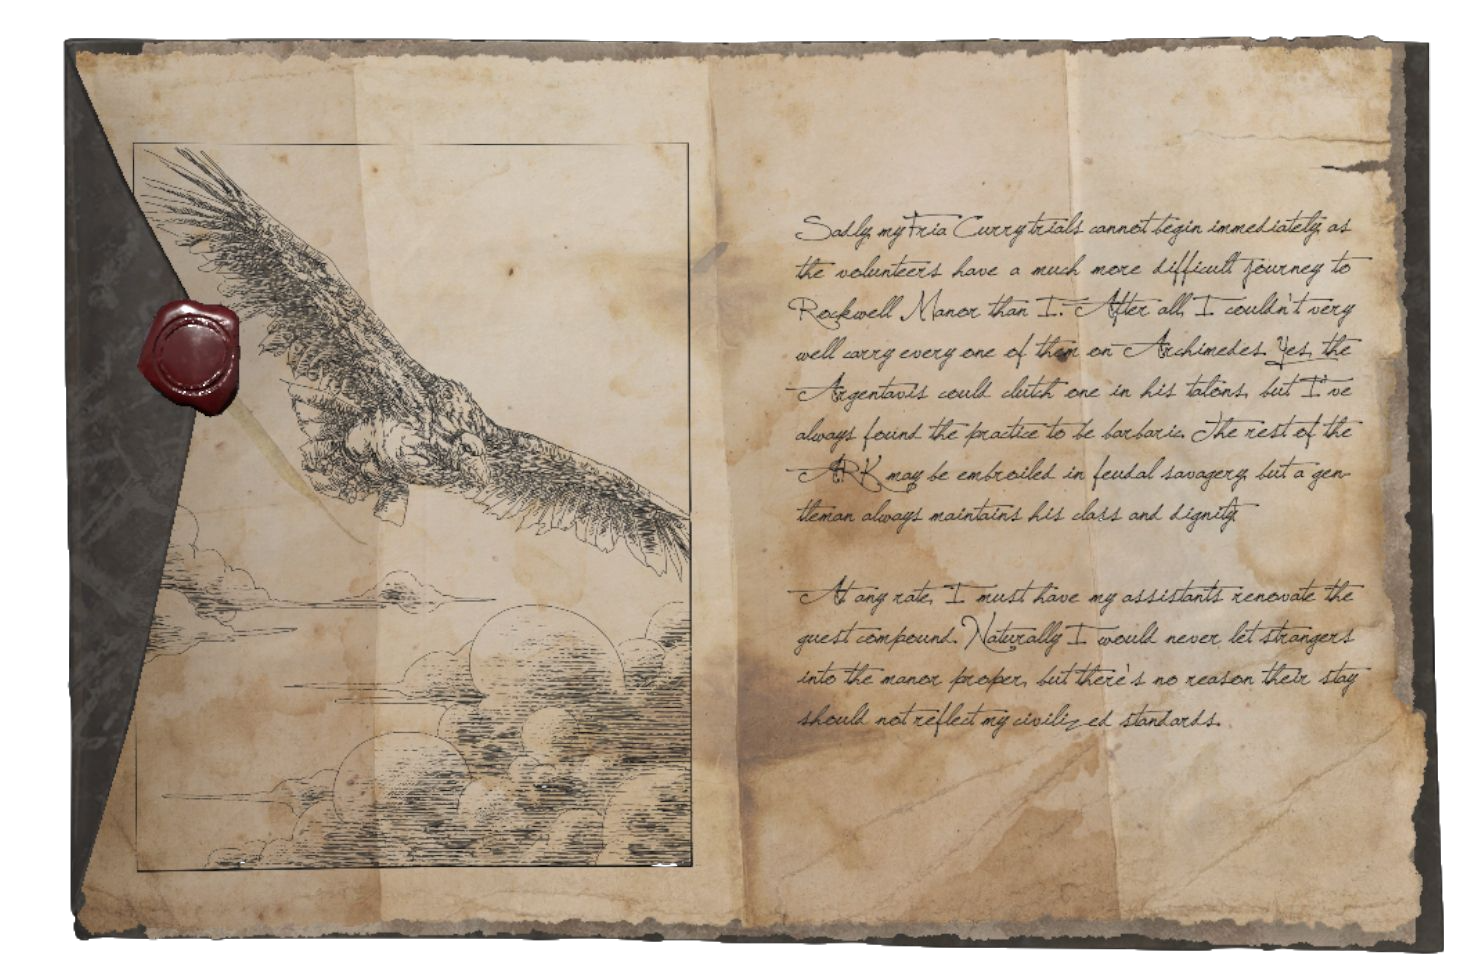 Sadly, my Fria Curry trials cannot begin immediately, as
the volunteers have a much more difficult journey to
Rockwell Manor than I. After all, I couldn't very
well carry every one of them on Archimedes. Yes, the
Argentavis could clutch one in his talons, but I've
always found the practice to be barbaric. The rest of the
ARK may be embroiled in feudal savagery, but a gen-
tleman always maintains his class and dignity.
At any rate, I must have my assistants renovate the
guest compound. Naturally I would never let strangers
into the manor proper, but there's no reason their stay
should not reflect my civilized standards.